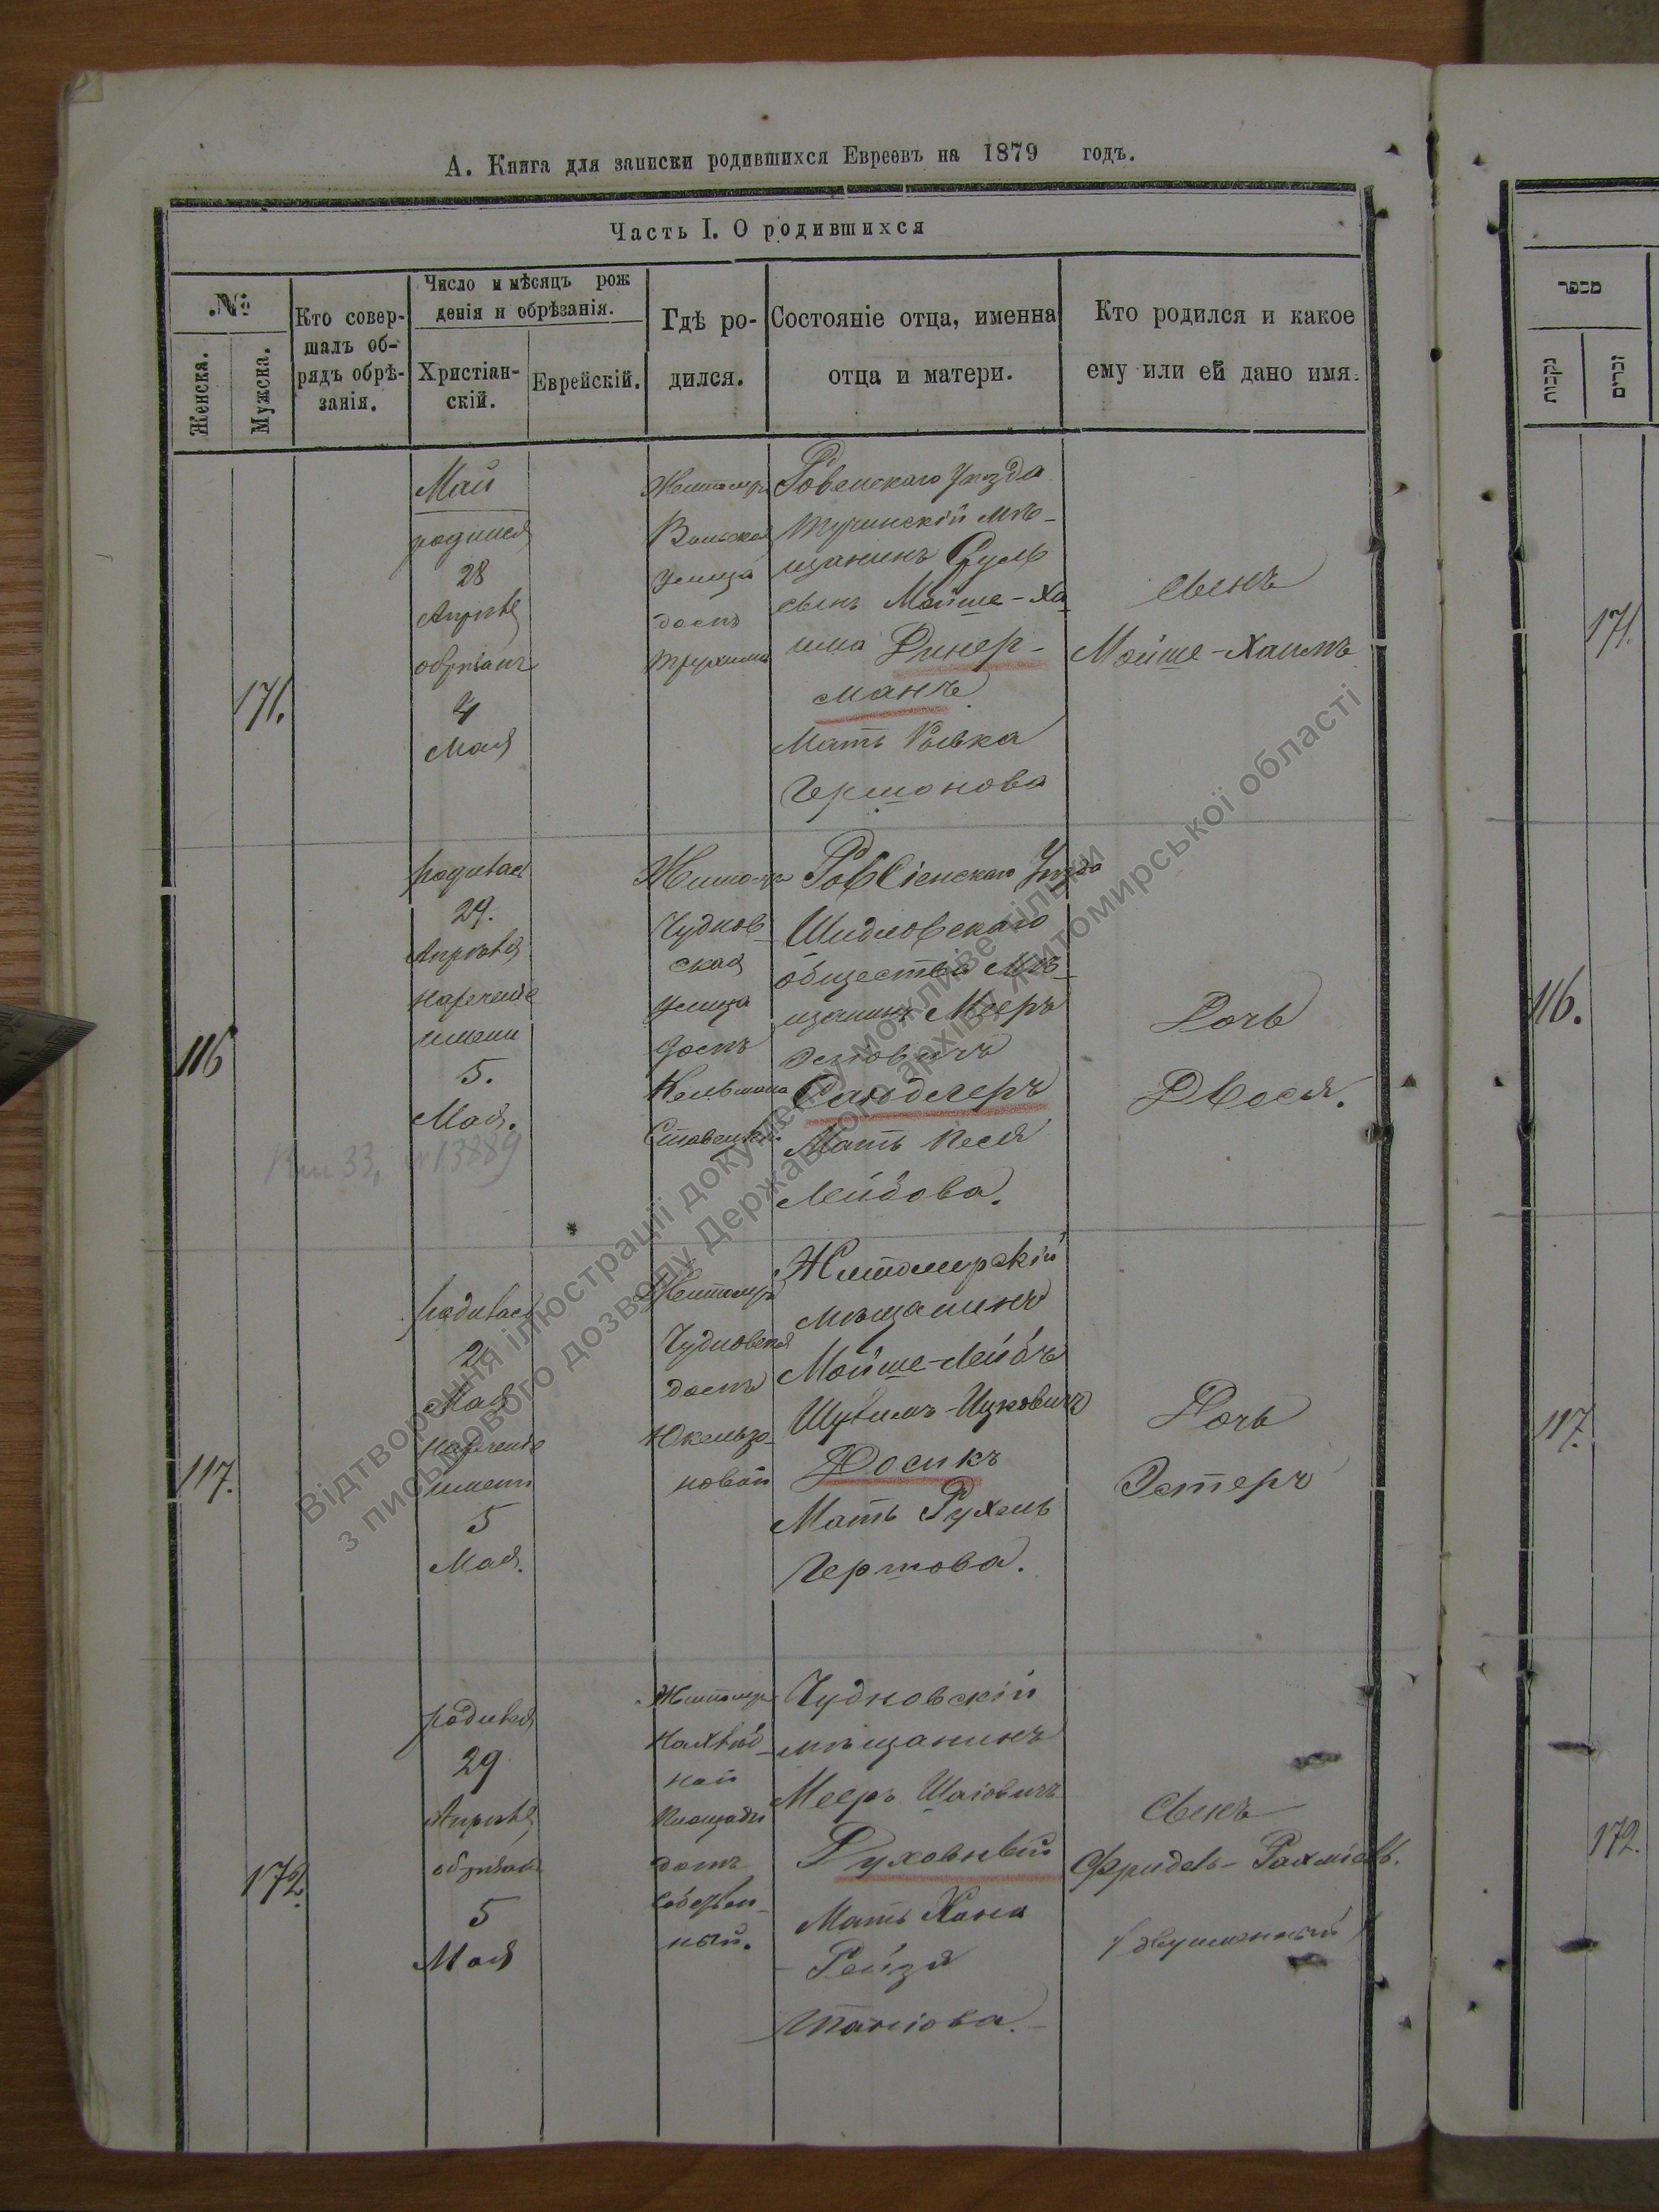 А. Книга для записки родившихся Евреевъ на 1879 годъ.
Часть I. О родившихся
№
Женска.
Мужска.
Кто совер-
шалъ об-
рядъ обрѣ-
занія.
Число и мѣсяцъ рож
денія и обрѣзанія.
Христіан-
скій.
Еврейскій.
Гдѣ ро-
дился.
Состояніе отца, именна
отца и матери.
Кто родился и какое
ему или ей дано имя.
מספר
נקבות
זכרים
171.
Май
родился
28
Апрѣля
обрѣзанъ
4
Мая
Житомиръ
улица
домъ
Ровенскаго Уѣзда
Тучинскій мѣ-
щанинъ Сруль
сынъ Мойше-Ха
има Динер-
манъ
Мать Ривка
Гершонова
сынъ
Мойше-Хаимъ
171.
116
родилась
29.
Апрѣля
нареченіе
имени
5.
Мая.
Житомиръ
Чуднов-
ская
улица
домъ
Кельмана
Уѣзда
общества мѣ-
щанинъ Мееръ
Сандлеръ
Мать Песя
Лейбова.
Дочь
Двося.
116.
13889
117.
родилась
2
Мая
нареченіе
имени
5
Мая.
Житомиръ
Чудновская
домъ
Житомирскій
мѣщанинъ
Мойше-Лейбъ
Ицковичъ
Досикъ
Мать Рухель
Гершова.
Дочь
Эстеръ
117.
172.
родился
29
Апрѣля
обрѣзанъ
5
Мая
Житомиръ
площади
домъ
собствен-
ный.
Чудновскій
мѣщанинъ
Мееръ Шаіовичъ
Духовный
Мать Хана
Рейзя
Сынъ
172.
Відтворення ілюстрації документу можливе тільки
з письмового дозволу Державного архіву Житомирської області